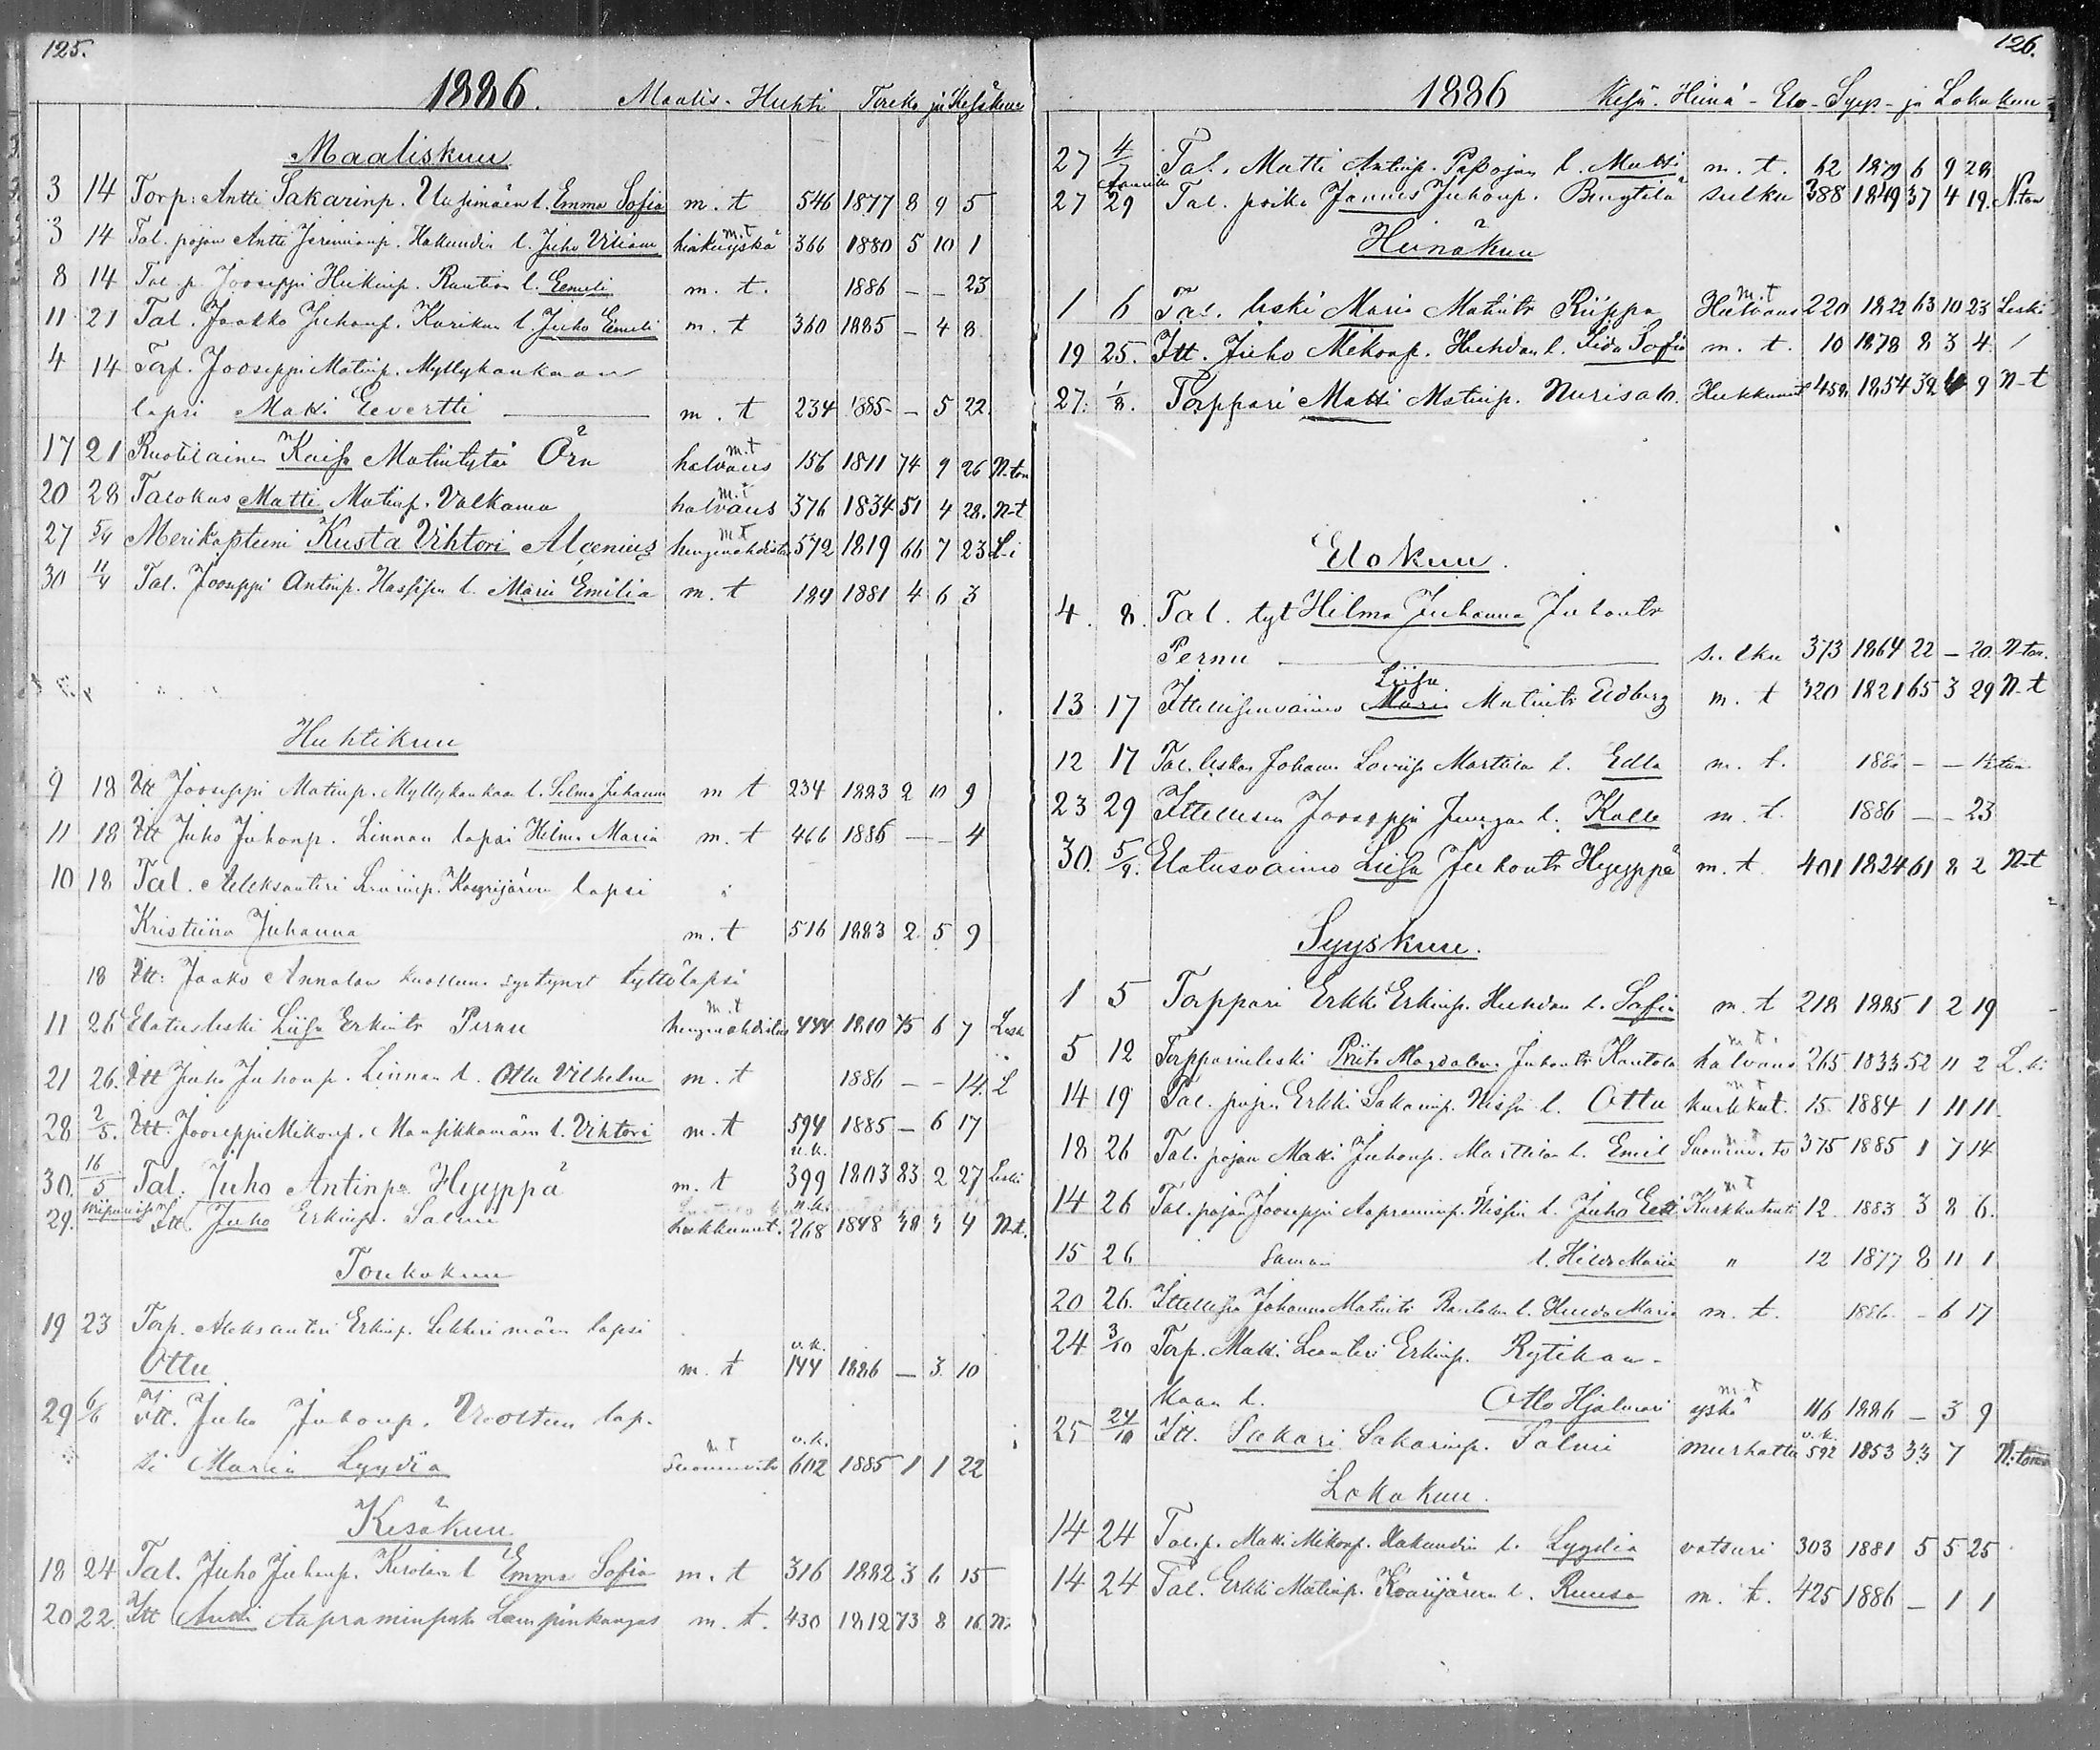 125.
1886. Maalis- Huhti Touko ja Kesäkuu
Maaliskuu
3 14 Torp: Antti Sakarinp. Uusimäen l. Emma Sofia m. t 546 1877 8 9 5
3 14 Tal. pojan Antti Jeremianp. Hakundin l. Juho Viliam hinkuyskä m.t 366 1880 5 10 1
8 14 Tal p. Jooseppi Heikinp. Raution l. Eemeli m. t. 1886 – – 23
11 21 Tal. Jaakko Juhonp. Karikan l Juho Eemeli m. t 360 1885 – 4 8.
4 14 Torp. Jooseppi Matinp. Myllykankaan
lapsi Matti Eevertti m. t 234 1885 – 5 22.
17 21 Ruotilainen Kaisa Matintytär Örn halvaus m.t 156 1811 74 9 26 N:ton
20 28 Talokas Matti Matinp. Valkama halvaus m.t 376 1834 51 4 28. N-t
27 5/4 Merikapteeni Kusta Vihtori Alcenius hengenahdistus m t 572 1819 66 7 23 L-i
30 11/4 Tal. Jooseppi Antinp. Hassisen l. Maria Emilia m. t 189 1881 4 6 3
Huhtikuu
9 18 Itt Jooseppi Matinp. Myllykankaan l. Selma Juhanna m t 234 1883 2 10 9
11 18 Itt Juho Juhonp. Linnan lapsi Hilma Maria m. t 466 1886 – – 4
10 18 Tal. Aleksanteri lapsi
Kristiina Juhanna m. t 516 1883 2 5 9
18 Itt: Jaako Annalan kuolluna syntynyt tyttölapsi
11 26 Elatusleski Liisa Erkintr Pernu hengenahdistus m.t 444 1810 75 6 7 Leski
21 26. Itt Juho Juhonp. Linnan l. Otto Vilhelm m. t 1886 – – 14. L
28 2/5. Itt. Jooseppi Mikonp. Mansikkamäen l. Vihtori m. t 594 u.k. 1885 – 6 17
30. 16/5 Tal. Juho Antinp. Hyyppä m. t 399 1803 83 2 27 Leski
29. Itt. Juho Erkinp. Salmi hukkunut. 268 1848 38 3 4 N-t.
Toukokuu
19 23 Torp. Aleksanteri Erkinp. Lekkerimäen lapsi
Ottu m. t v.k. 144 1886 – 3 10
29 6/6 Itt. Juho Juhonp. lap-
si Maria Lyydia m t v.k. 602 1885 1 1 22
Kesäkuu
18 24 Tal. Juho Juhonp. Kerolan l Emma Sofia m. t 316 1882 3 6 15
20 22. Itt Antti Aapraminpoika Lampinkangas m. t. 430 1812 73 8 16 N-
126.
1886 Kesä- Heinä- Elo- Syys- ja Lokakuu
27 4/7 Tal. Matti Antinp. l. Matti m. t. 62 1879 6 9 28
27 29 Tal. poika Jaanus Juhonp. Bengtilä sulku 388 1849 37 4 19. N.ton
Heinäkuu
1 6 Tal. leski Maria Matintr Riippa Halvaus m.t 220 1822 63 10 23 Leski
19 25. Itt. Juho Mikonp. Huhdan l. Iida Sofia m. t. 10 1878 8 3 4.
27. 1/8. Torppari Matti Matinp. Nurisalo. Hukkunut 458 1854 32 6 9 N-t
Elokuu.
4. 8. Tal. tyt Hilma Juhanna Juhontr
Pernu sulku 373 1864 22 – 20. N-ton.
13 17 Itellisenvaimo Liisa Matintr Edberg m. t 320 1821 65 3 29 N-t
12 17 Tal. lesken Johanna Martilan l. Edla m. t. 188 – – ½ tun
23 29 Itellisen Jooseppi Jungan l. Kalle m. t. 1886 – – 23
30. 5/9. Elatusvaimo Liisa Juhontr Hyyppä m. t. 401 1824 61 8 2 N-t
Syyskuu.
1 5 Torppari Erkki Erkinp. Huhdan l. Sofia m. t 218 1885 1 2 19
5 12 Torpparinleski Priita Magdalena Juhontr Kantola halvaus m t. 265 1833 52 11 2 L.ki
14 19 Tal. pojan Erkki Sakarinp. Nissin l. Ottu kurkkut. m t 15 1884 1 11 11
18 26 Tal. pojan Matti Juhonp. Marttilan l. Emil m t 375 1885 1 7 14
14 26 Tal. pojan Jooseppi Aapraminp. Nissin l. Juho Eeli Kurkkutauti m t 12 1883 3 8 6.
15 26 Saman l. Hilda Maria " 12 1877 8 11 1
20 26. Itellisen Johanna Matintr Rantalan l. Maria m. t. 1886 – 6 17
24 3/10 Torp. Matti Leanteri Erkinp. Rytikan-
kaan l. Otto Hjalmari yskä m t 116 1886 – 3 9
25 24/10 Itt. Sakari Sakarinp. Salmi murhattu v.k. 592 1853 33 7 N:ton
Lokakuu.
14 24 Tal.p. Matti Mikonp. Hakundin l. Lyydia vatsuri 303 1881 5 5 25
14 24 Tal. Erkki Matinp. Koorijärven l. Ruusa m. t. 425 1886 – 1 1